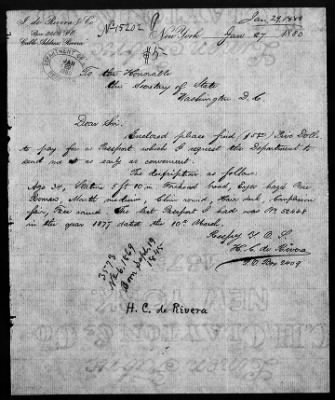 J. de Rivera & Co.
Box 2009 P.O.
Cable Address Rivera
No 15202
Jan 29, 1880
New York Jan 27 1880
$5-
To the Honorable
the Secretary of State
Washington D.C.
Dear Sir:
Enclosed please find ($5 00) Five Dolls
to pay for a Passport which I request the Department to
send me at as early as convenient.
The description as follows:
Age 34, Stature 5 ft 10 in Forehead broad, Eyes hazel Nose
Roman, Mouth medium, Chin round, Hair dark, Complexion
fair, Face round The last Passport I had was No 52468
in the year 1877 dated the 10th March.
Respy Y.O.S.
H. C. de Rivera
P.O. Box 2009
3573
Born Sept 19
1845
H. C. de Rivera